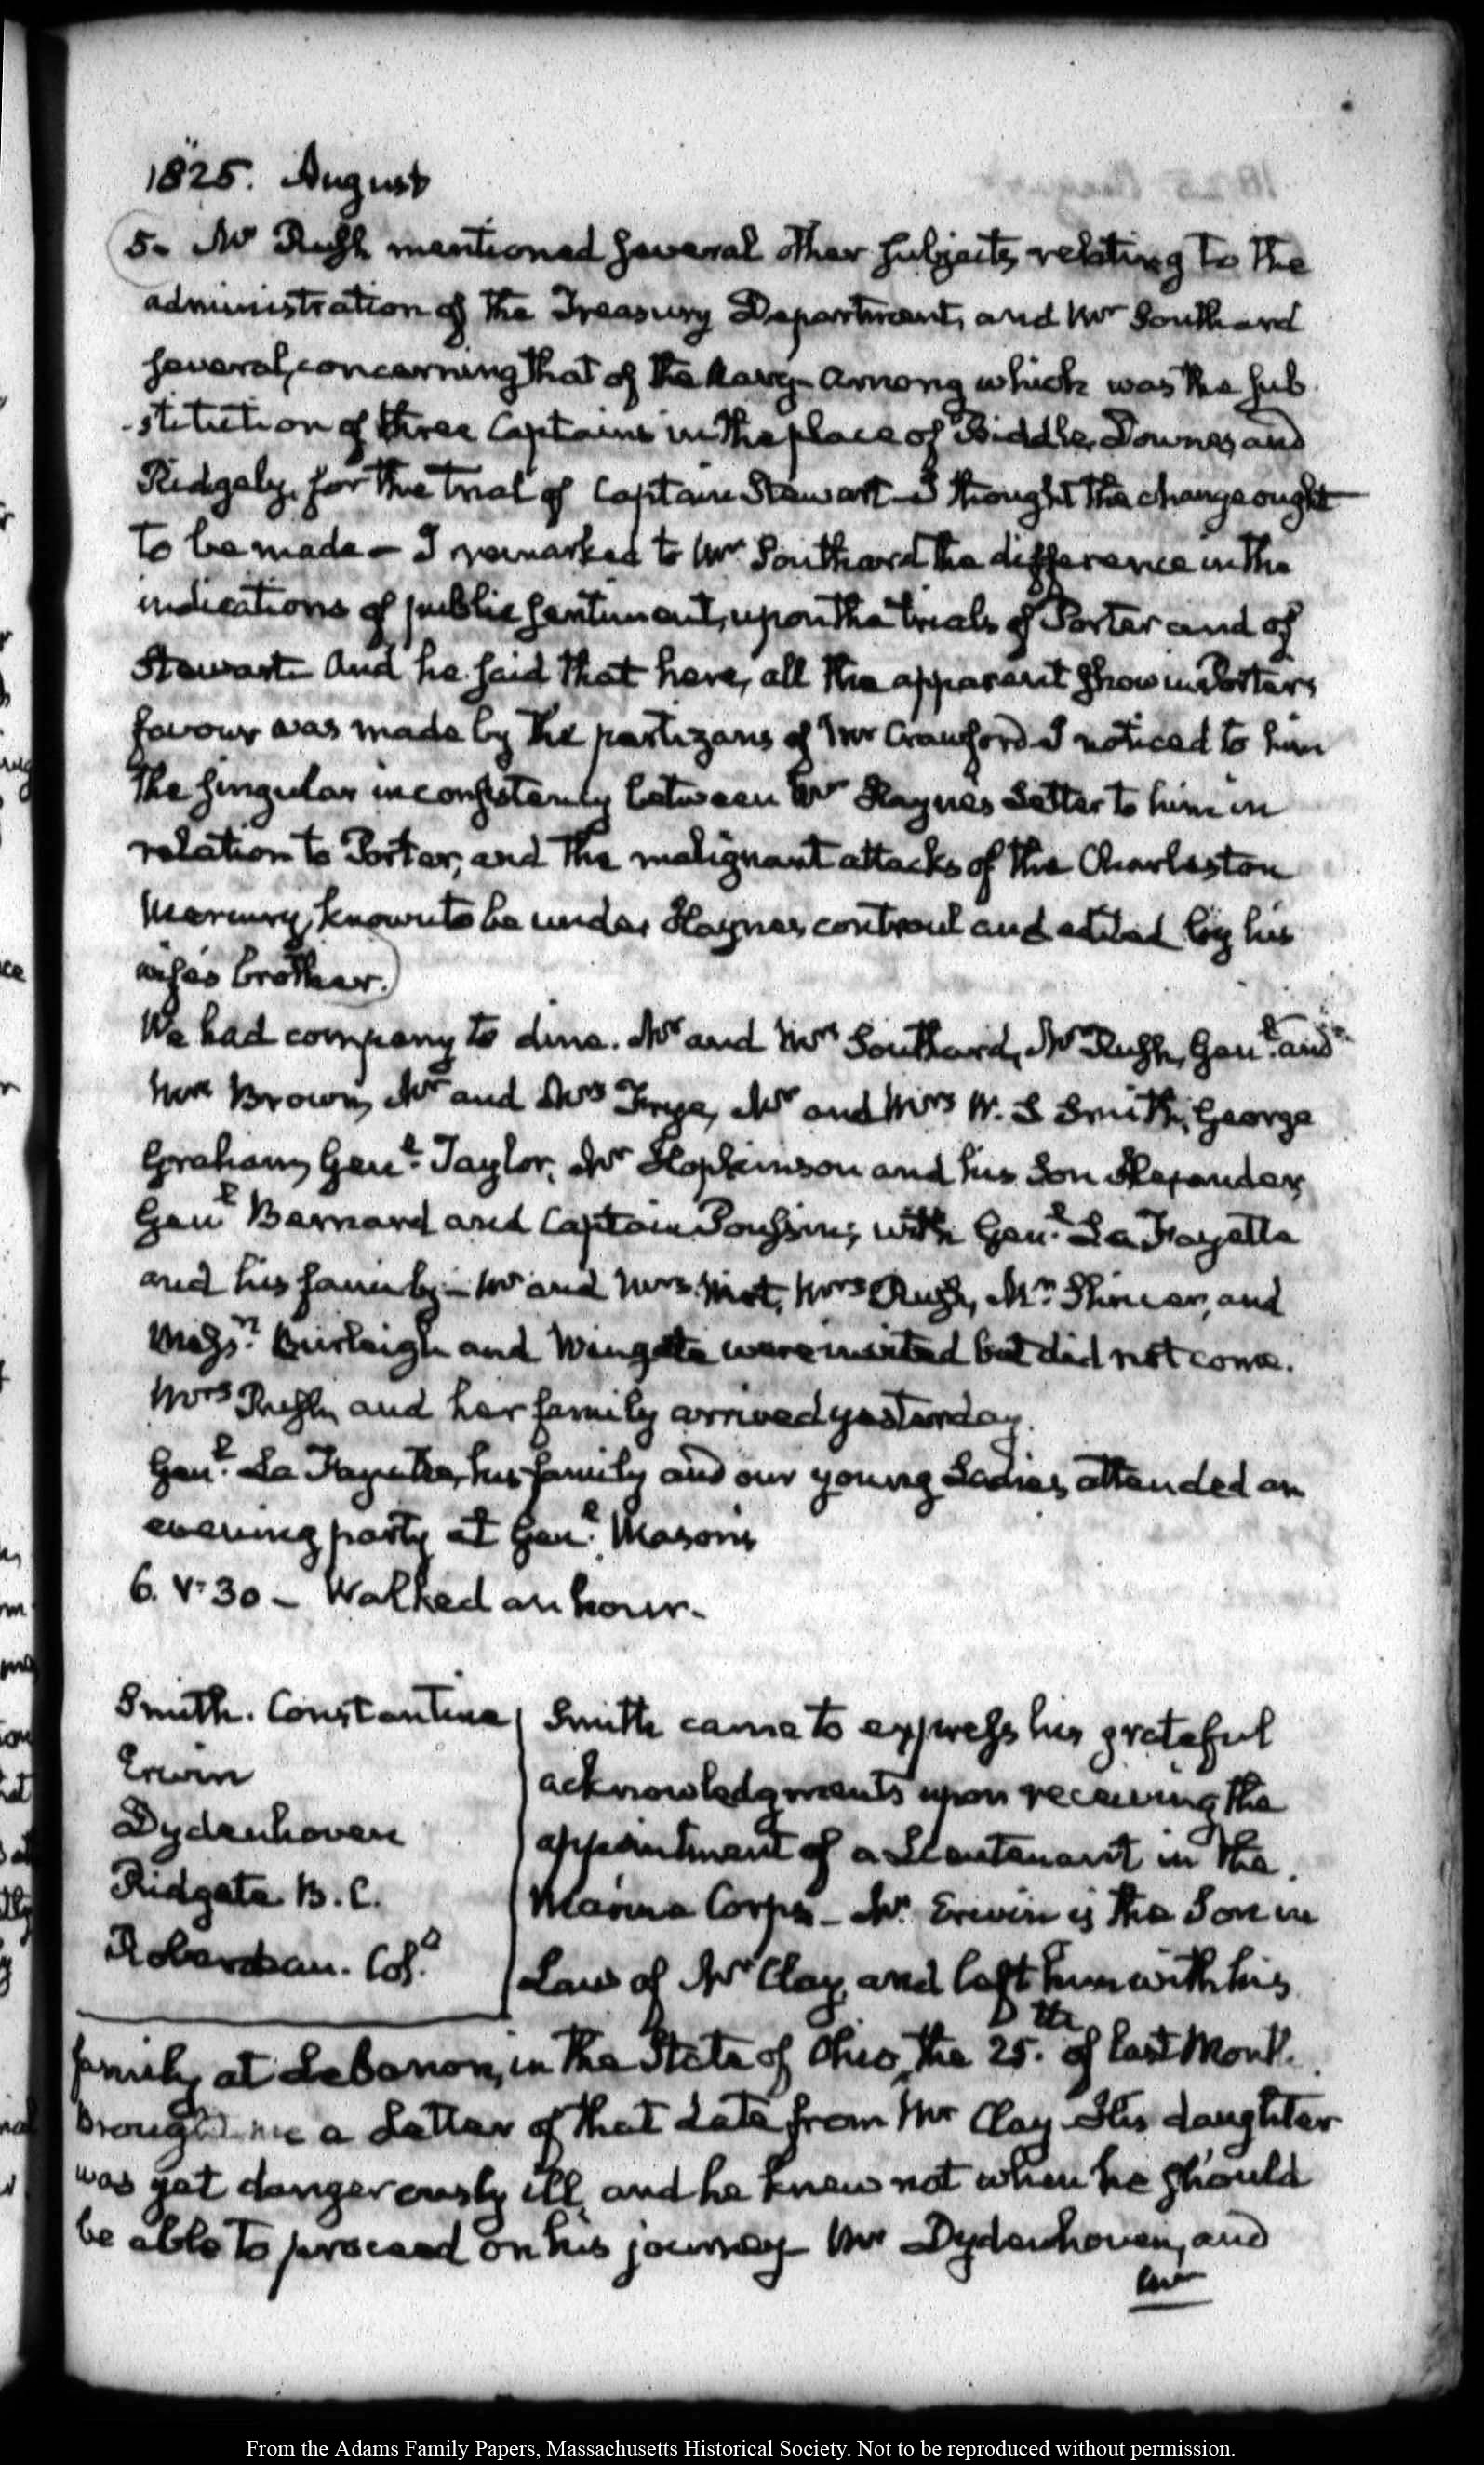 1825. August
5. Mr Rush mentioned several other subjects, relating to the
administration of the Treasury Department, and Mr Southard
several, concerning that of the Navy— Among which was the sub
-stitution of three Captains in the place of Biddle, Downes, and
Ridgely, for the trial of Captain Stewart— I thought the change ought
to be made— I remarked to Mr Southard the difference in the
indications of public sentiment, upon the trials of Porter and of
Stewart— And he said that here, all the apparent show in Porter's
favour was made by the partizans of Mr Crawford— I noticed to him
the singular inconsistency between Mr Hayne's Letter to him in
relation to Porter, and the malignant attacks of the Charleston
Mercury, known to be under Hayne's controul and edited by his
wife's brother.
We had company to dine. Mr and Mrs Southard, Mr Rush, Genl. and
Mrs Brown, Mr and Mrs Frye, Mr and Mrs W. S Smith, George
Graham, Genl. Taylor, Mr Hopkinson and his Son Alexander,
Genl Bernard and Captain Poussin, with Genl. La Fayette
and his family— Mr and Mrs Wirt, Mrs Rush, Mr. Skinner, and
Messrs. Burleigh and Wingate were invited but did not come.
Mrs Rush, and her family arrived yesterday.
Genl. La Fayette, his family and our young Ladies, attended an
evening party at Genl. Mason's
6. V:30— Walked an hour.
Smith. Constantine
Erwin
Dydenhoven
Ridgate B. C.
Roberdeau. Col.
Smith came to express his grateful
acknowledgments upon receiving the
appointment of a Lieutenant in the
Marine Corps— Mr. Erwin is the Son in
Law of Mr Clay, and left him with his
family at Lebanon, in the State of Ohio, the 25.th of last Month.
Brought me a Letter of that date from Mr Clay— His daughter
was yet dangerously ill, and he knew not when he should
be able to proceed on his journey— Mr Dydenhoven, and
Mr
From the Adams Family Papers, Massachusetts Historical Society. Not to be reproduced without permission.